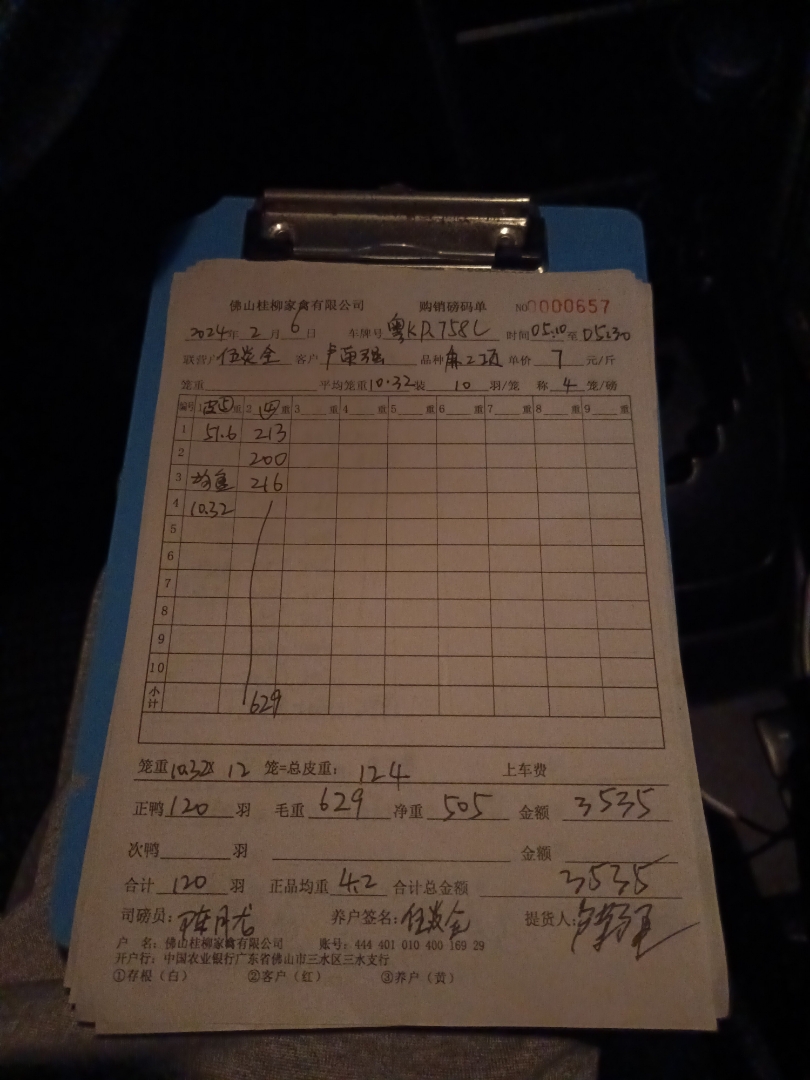 佛山桂柳家禽有限公司 购销磅码单 NO 0000657
2024年 2 月 6 日 车牌号 粤KR758L 时间 05:10 至 05:30
联营户 伍炎全 客户 品种 单价 7 元/斤
笼重 平均笼重 10.32 装 10 羽/笼 称 4 笼/磅
编号 1 皮⑤ 重 2 四 重 3 重 4 重 5 重 6 重 7 重 8 重 9 重
1 51.6 213
2 200
3 均重 216
4 10.32
5
6
7
8
9
10
小计 629
笼重 10.32x 12 笼=总皮重: 124 上车费
正鸭 120 羽 毛重 629 净重 505 金额 3535
次鸭 羽 金额
合计 120 羽 正品均重 4.2 合计总金额 3535
司磅员: 陈月龙 养户签名: 伍炎全 提货人:
户 名: 佛山桂柳家禽有限公司 账号: 444 401 010 400 169 29
开户行: 中国农业银行广东省佛山市三水区三水支行
①存根（白） ②客户（红） ③养户（黄）